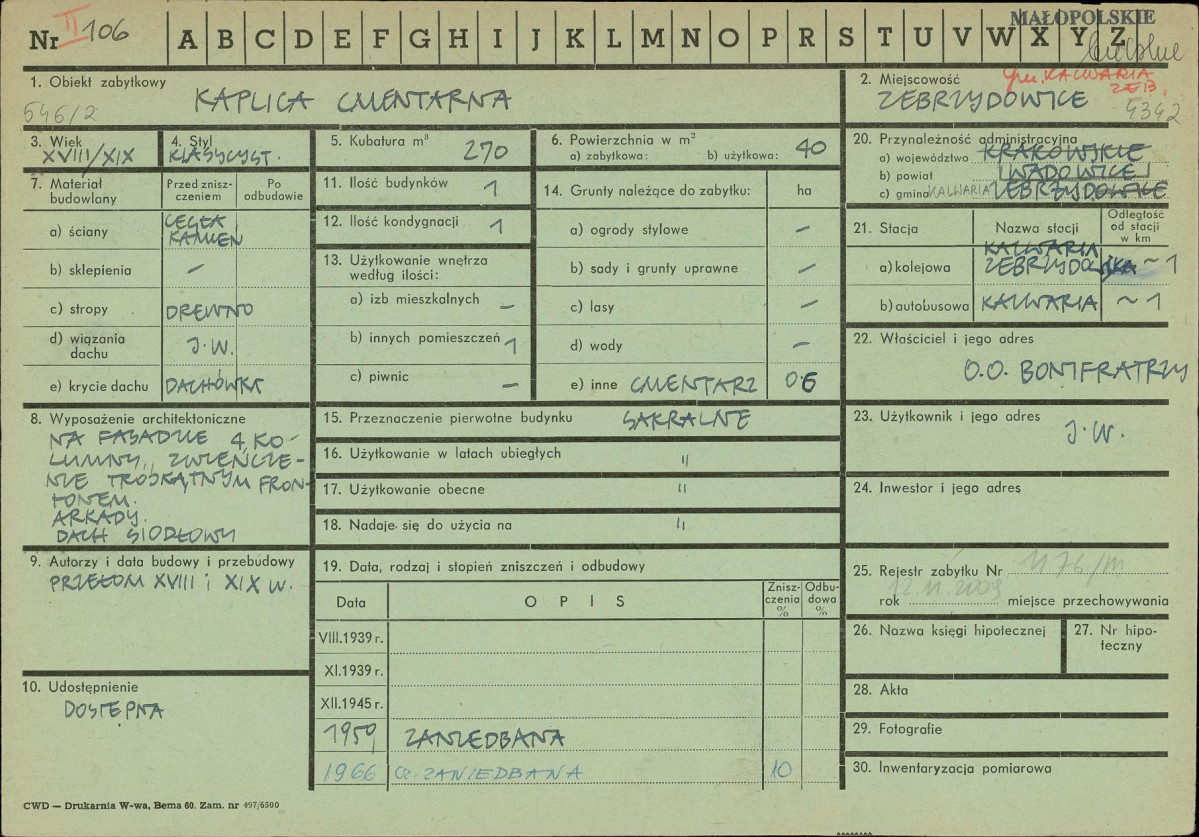 Nr II 106
A B C D E F G H I J K L M N O P R S T U V W X Y Z
MAŁOPOLSKIE
1. Obiekt zabytkowy
KAPLICA CMENTARNA
646/2
2. Miejscowość
gm. KALWARIA ZEB.
ZEBRZYDOWICE
4342
3. Wiek
XVIII/XIX
4. Styl
KLASYCYST.
5. Kubatura m³ 270
6. Powierzchnia w m²
a) zabytkowa: b) użytkowa: 40
7. Materiał budowlany
Przed zniszczeniem
Po odbudowie
a) ściany CEGŁA KAMIEŃ
b) sklepienia –
c) stropy DREWNO
d) wiązania dachu J.W.
e) krycie dachu DACHÓWKA
8. Wyposażenie architektoniczne
NA FASADZIE 4 KO-
LUMNY, ZWIEŃCZE-
NIE TRÓJKĄTNYM FRON-
TONEM.
ARKADY.
DACH SIODŁOWY
9. Autorzy i data budowy i przebudowy
PRZEŁOM XVIII i XIX W.
10. Udostępnienie
DOSTĘPNA
11. Ilość budynków 1
12. Ilość kondygnacji 1
13. Użytkowanie wnętrza według ilości:
a) izb mieszkalnych –
b) innych pomieszczeń 1
c) piwnic –
14. Grunty należące do zabytku: ha
a) ogrody stylowe –
b) sady i grunty uprawne –
c) lasy –
d) wody –
e) inne CMENTARZ 0.6
15. Przeznaczenie pierwotne budynku SAKRALNE
16. Użytkowanie w latach ubiegłych "
17. Użytkowanie obecne "
18. Nadaje się do użycia na "
19. Data, rodzaj i stopień zniszczeń i odbudowy
Data
OPIS
Zniszczenia %
Odbudowa %
VIII.1939 r.
XI.1939 r.
XII.1945 r.
1959 ZANIEDBANA
1966 cz. ZANIEDBANA 10
20. Przynależność administracyjna
a) województwo KRAKOWSKIE
b) powiat WADOWICE
c) gmina KALWARIA ZEBRZYDOWICE
21. Stacja
Nazwa stacji
Odległość od stacji w km
a) kolejowa KALWARIA ZEBRZYDOWSKA ~1
b) autobusowa KALWARIA ~1
22. Właściciel i jego adres
O.O. BONIFRATRZY
23. Użytkownik i jego adres
J.W.
24. Inwestor i jego adres
25. Rejestr zabytku Nr 1176/M
12.11.2009
rok miejsce przechowywania
26. Nazwa księgi hipotecznej
27. Nr hipoteczny
28. Akta
29. Fotografie
30. Inwentaryzacja pomiarowa
CWD — Drukarnia W-wa, Bema 60. Zam. nr 497/6500